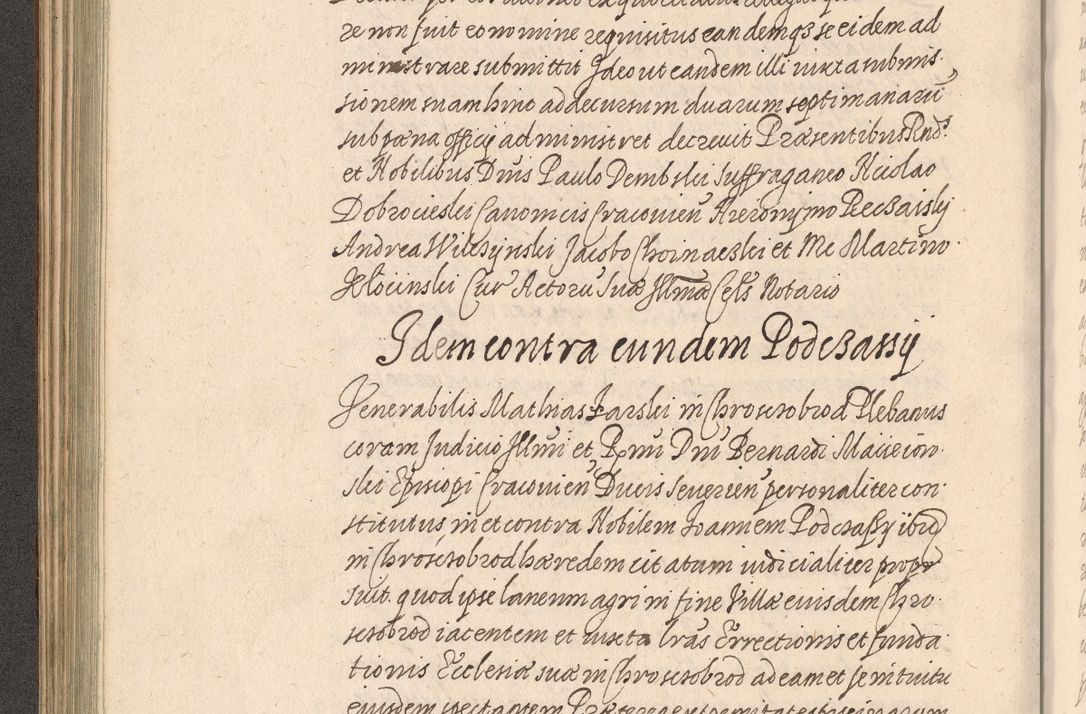 re non fuit eo nomine requisitus eandemqs se eidem ad
ministrare submittit Ideo ut eandem illi iuxta submis
sionem suam hinc ad decursum duarum septimanaru
sub pœna officij administret decreuit Præsentibus Rndis
et Nobilibus Dnis Paulo Dembski Suffraganeo Nicolao
Dobrocieski Canonicis Cracouien Hieronymo Recżaisky
Andrea Wilczynski Jacobo Choinaeski et Me Martino
Kłocinski Cur Actoru Suæ Illmæ Cels Notario
Idem contra eundem Podczassÿ
Venerabilis Mathias Jarski in Chroscrobrod Plebanus
coram Judicio Illmi et Rxmi Dni Bernardi Macieiow
ski Episcopi Cracouien Ducis Seuerien personaliter con
stitutus in et contra Nobilem Joannem Podczassy ibid
in Chroscrobrod hæredem citatum iudicialiter propo
suit. quod ipse laneum agri in fine Villæ eiusdem Chro
scrobrod iacentem et iuxta lras Errectionis et funda
tionis Ecclesiæ suæ in Chroscrobrod ad eam et
eiusdem spectantem